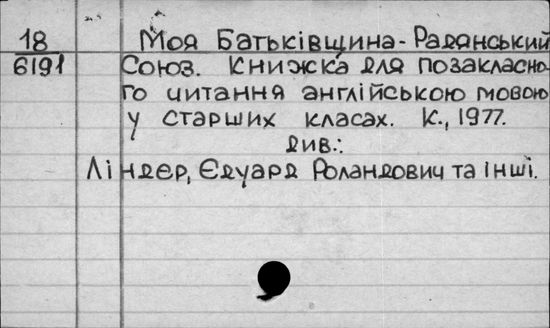 18 Моя Батьківщина-Радянський
6191 Союз. Книжка для позакласно-
го читання англійською мовою
у старших класах. К., 1977.
див.:
Ліндер, Єдуард Роландович та інші.